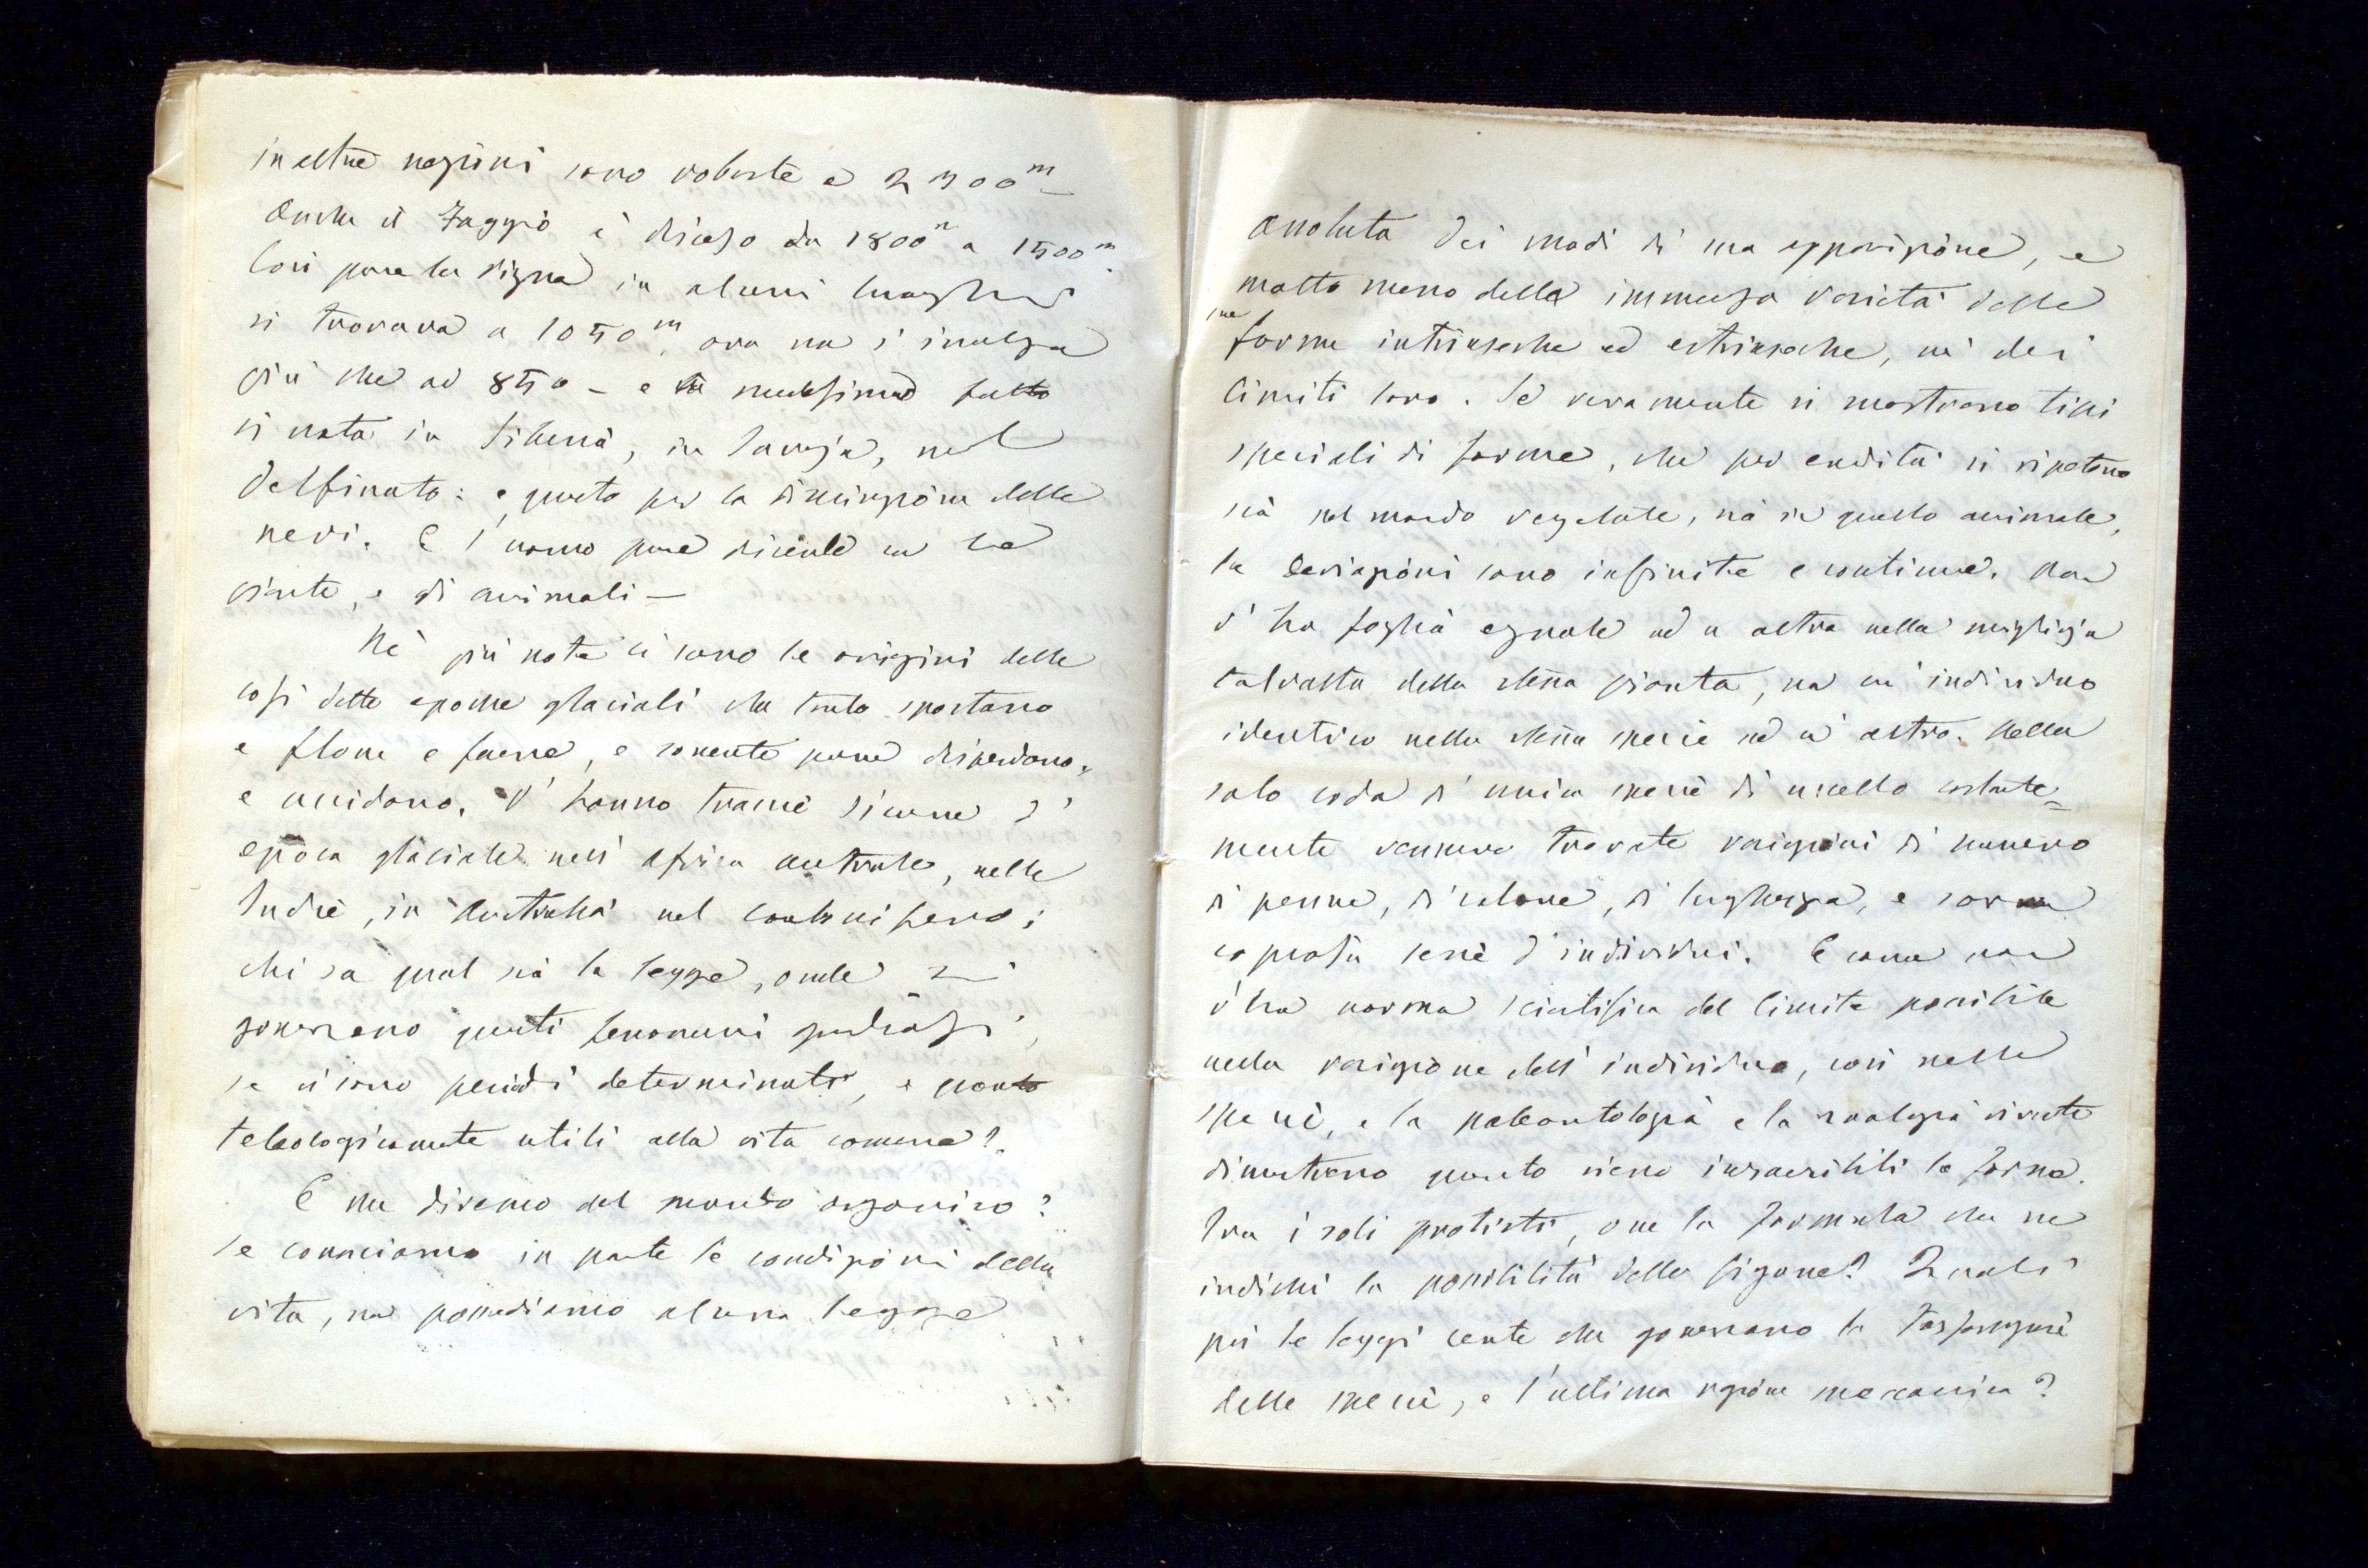 in altre regioni sono robuste a 2300m –
Anche il Faggio è disceso da 1800m a 1500m.
Così pure la vigna in alcuni luoghi
si trovava a 1050m, ora non s'inalza
più che ad 850 – e medesimo fatto
si nota in Siberia, in, nel
Delfinato: e questo per la diminuzione delle
nevi. E l'uomo pure discende con le
piante, e gli animali –
Nè più note ci sono le origini delle
così dette epoche glaciali che tanto spostano
e flore e faune, e sovente pure disperdono,
e uccidono. V'hanno traccie sicure d'
epoca glaciale nell'Africa australe, nelle
Indie, in Australia nel carbonifero;
chi sa qual sia la legge, onde si
governano questi fenomeni grandiosi,
se vi sono periodi determinati, e quanto
teleologicamente utili alla vita comune?
E che diremo del mondo organico?
Se conosciamo in parte le condizioni della
vita, non possediamo alcuna legge
assoluta dei modi di sua apparizione, e
molto meno della immensa varietà delle
sue
forme intrinseche ed estrinseche, nè dei
limiti loro. Se veramente si mostrano tipi
speciali di forme, che per eredità si ripetono
sia nel mondo vegetale, sia in quello animale,
le deviazioni sono infinite e continue. Non
v'ha foglia eguale ad a altra nelle migliaja
talvolta della stessa pianta, nè un individuo
identico nella stessa specie ad un altro. Nella
sola coda d'unica specie di uccello costante=
mente vennero trovate variazioni di numero
di penne, di colore, di lunghezza, e forma
copiosa serie d'individui. E come non
v'ha norma scientifica del limite possibile
nella variazione dell'individuo, così nelle
specie, e la paleontologia e la zoologia vivente
dimostrano quanto sieno inesauribili le forme.
Tra i soli protisti, ove la formula che ne
indichi la possibilità delle figure? Quali
poi le leggi certe che governano le
delle specie, e l'ultima ragione meccanica?